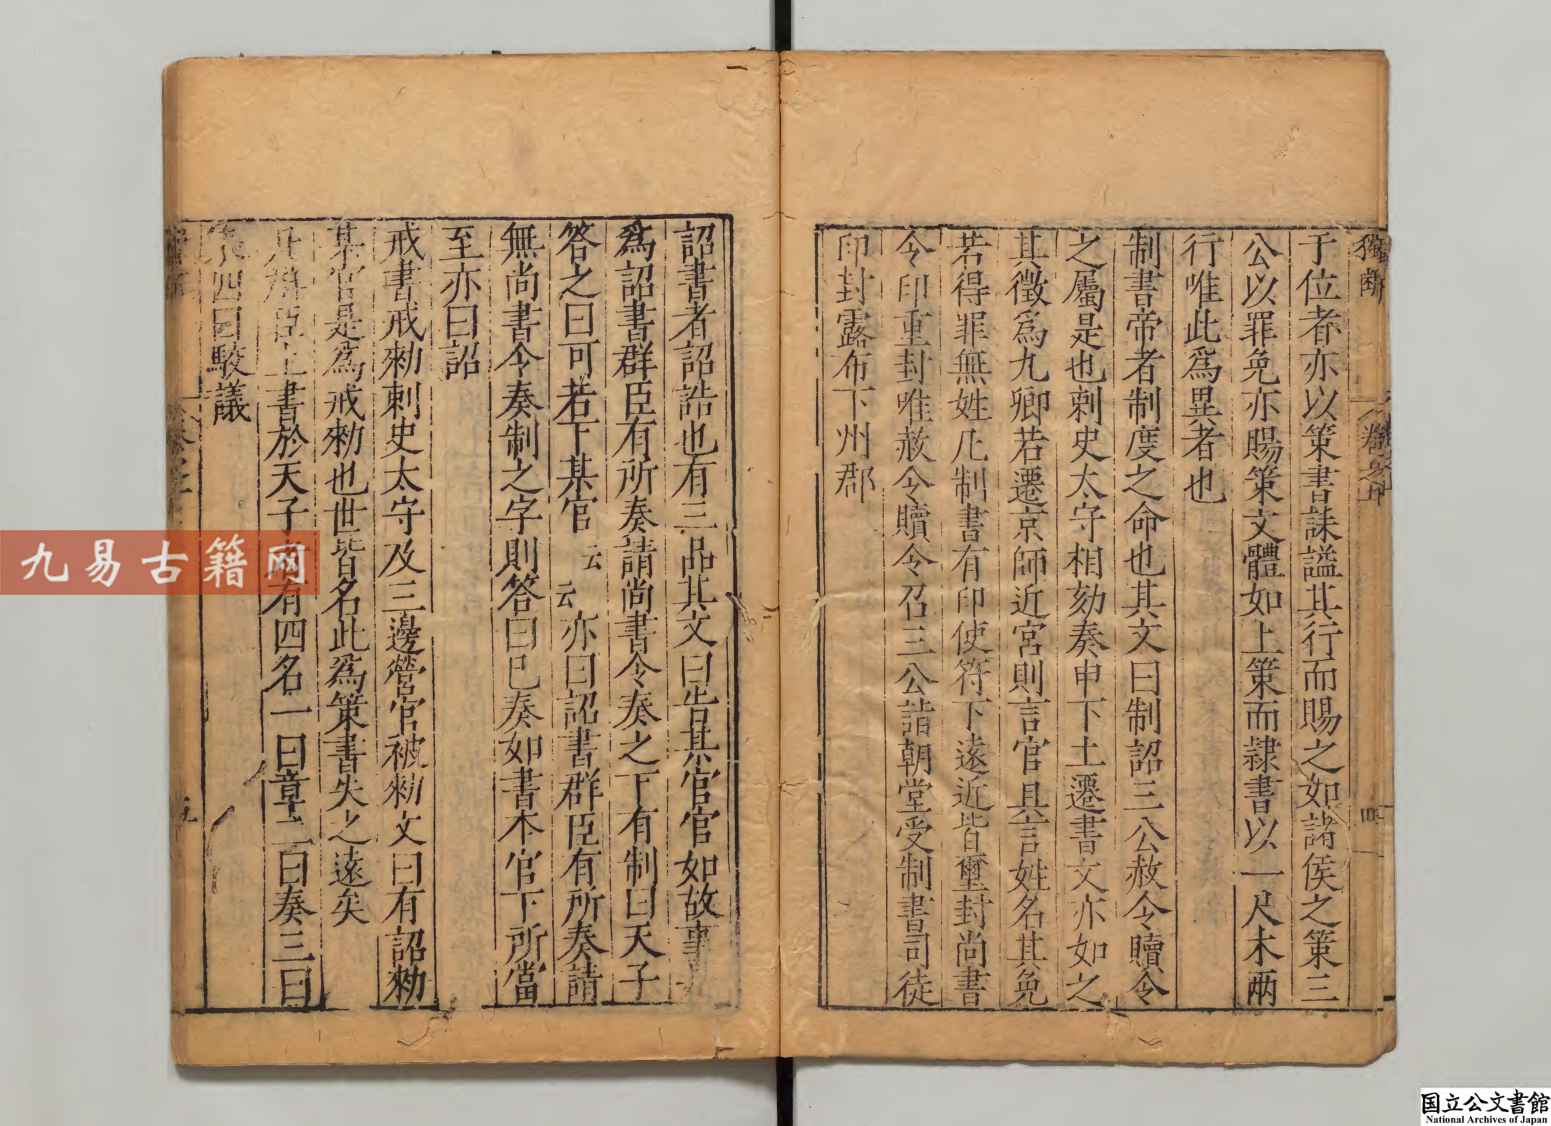 獨斷
卷之
四
子位者亦以策書誄謚其行而賜之如諸侯之策三
公以罪免亦賜策文體如上策而隸書以一尺木兩
行唯此爲異者也
制書帝者制度之命也其文曰制詔三公赦令贖令
之屬是也刺史太守相劾奏申下土遷書文亦如之
其徵爲九卿若遷京師近宮則言官具言姓名其免
若得罪無姓凡制書有印使符下遠近皆璽封尚書
令印重封唯赦令贖令召三公詣朝堂受制書司徒
印封露布下州郡
詔書者詔誥也有三品其文曰告某官官如故事
爲詔書群臣有所奏請尚書令奏之下有制曰天子
答之曰可若下某官云云亦曰詔書群臣有所奏請
無尚書令奏制之字則答曰已奏如書本官下所當
至亦曰詔
戒書戒勑刺史太守及三邊營官被勑文曰有詔勑
某官是爲戒勑也世皆名此爲策書失之遠矣
凡群臣上書於天子有四名一曰章二曰奏三曰
表四曰駮議
卷之
五
九易古籍网
国立公文書館
National Archives of Japan